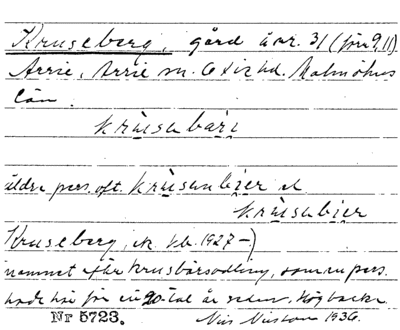 Kruseberg, gård å nr. 31 (förr 9, 11)
Arrie, Arrie sn. Oxie hd. Malmöhus
län.
krùsabari
äldre pers. oft. krùsanbier el
krùsabier
Kruseberg, ek. kb. 1927-)
namnet efter krusbärsodling, som en pers.
hade här för en 20-tal år sedan. Hög backe
Nr 5723. Nils Nilsson 1936.